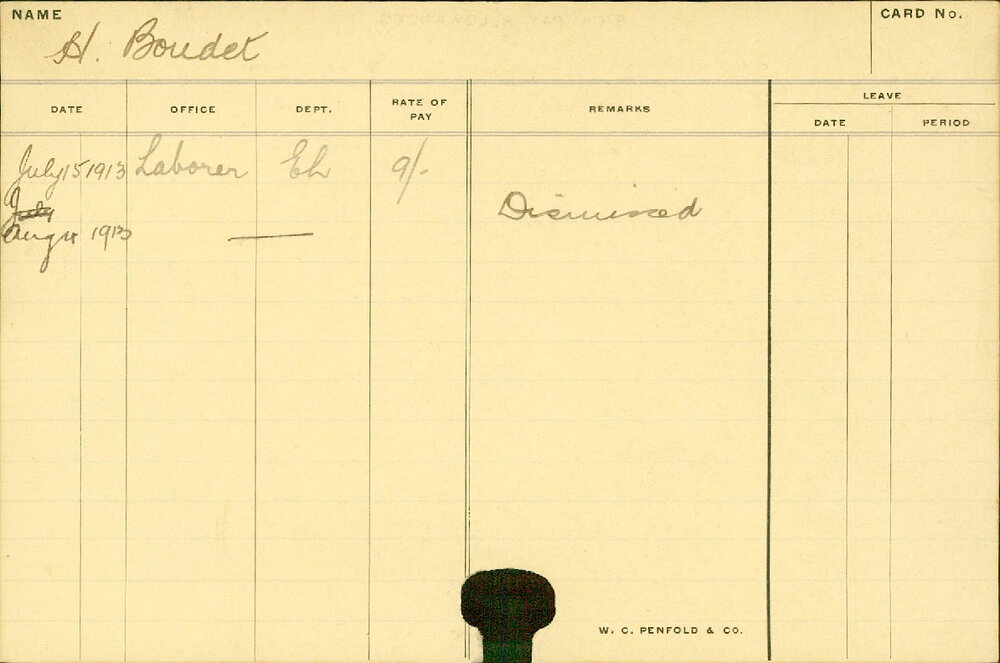 NAME
CARD No.
H. Boudet
DATE OFFICE DEPT. RATE OF PAY REMARKS LEAVE
DATE PERIOD
July 15 1913 Laborer Eh 9/-
July
Aug 4 1913 — Dismissed
W. C. PENFOLD & CO.